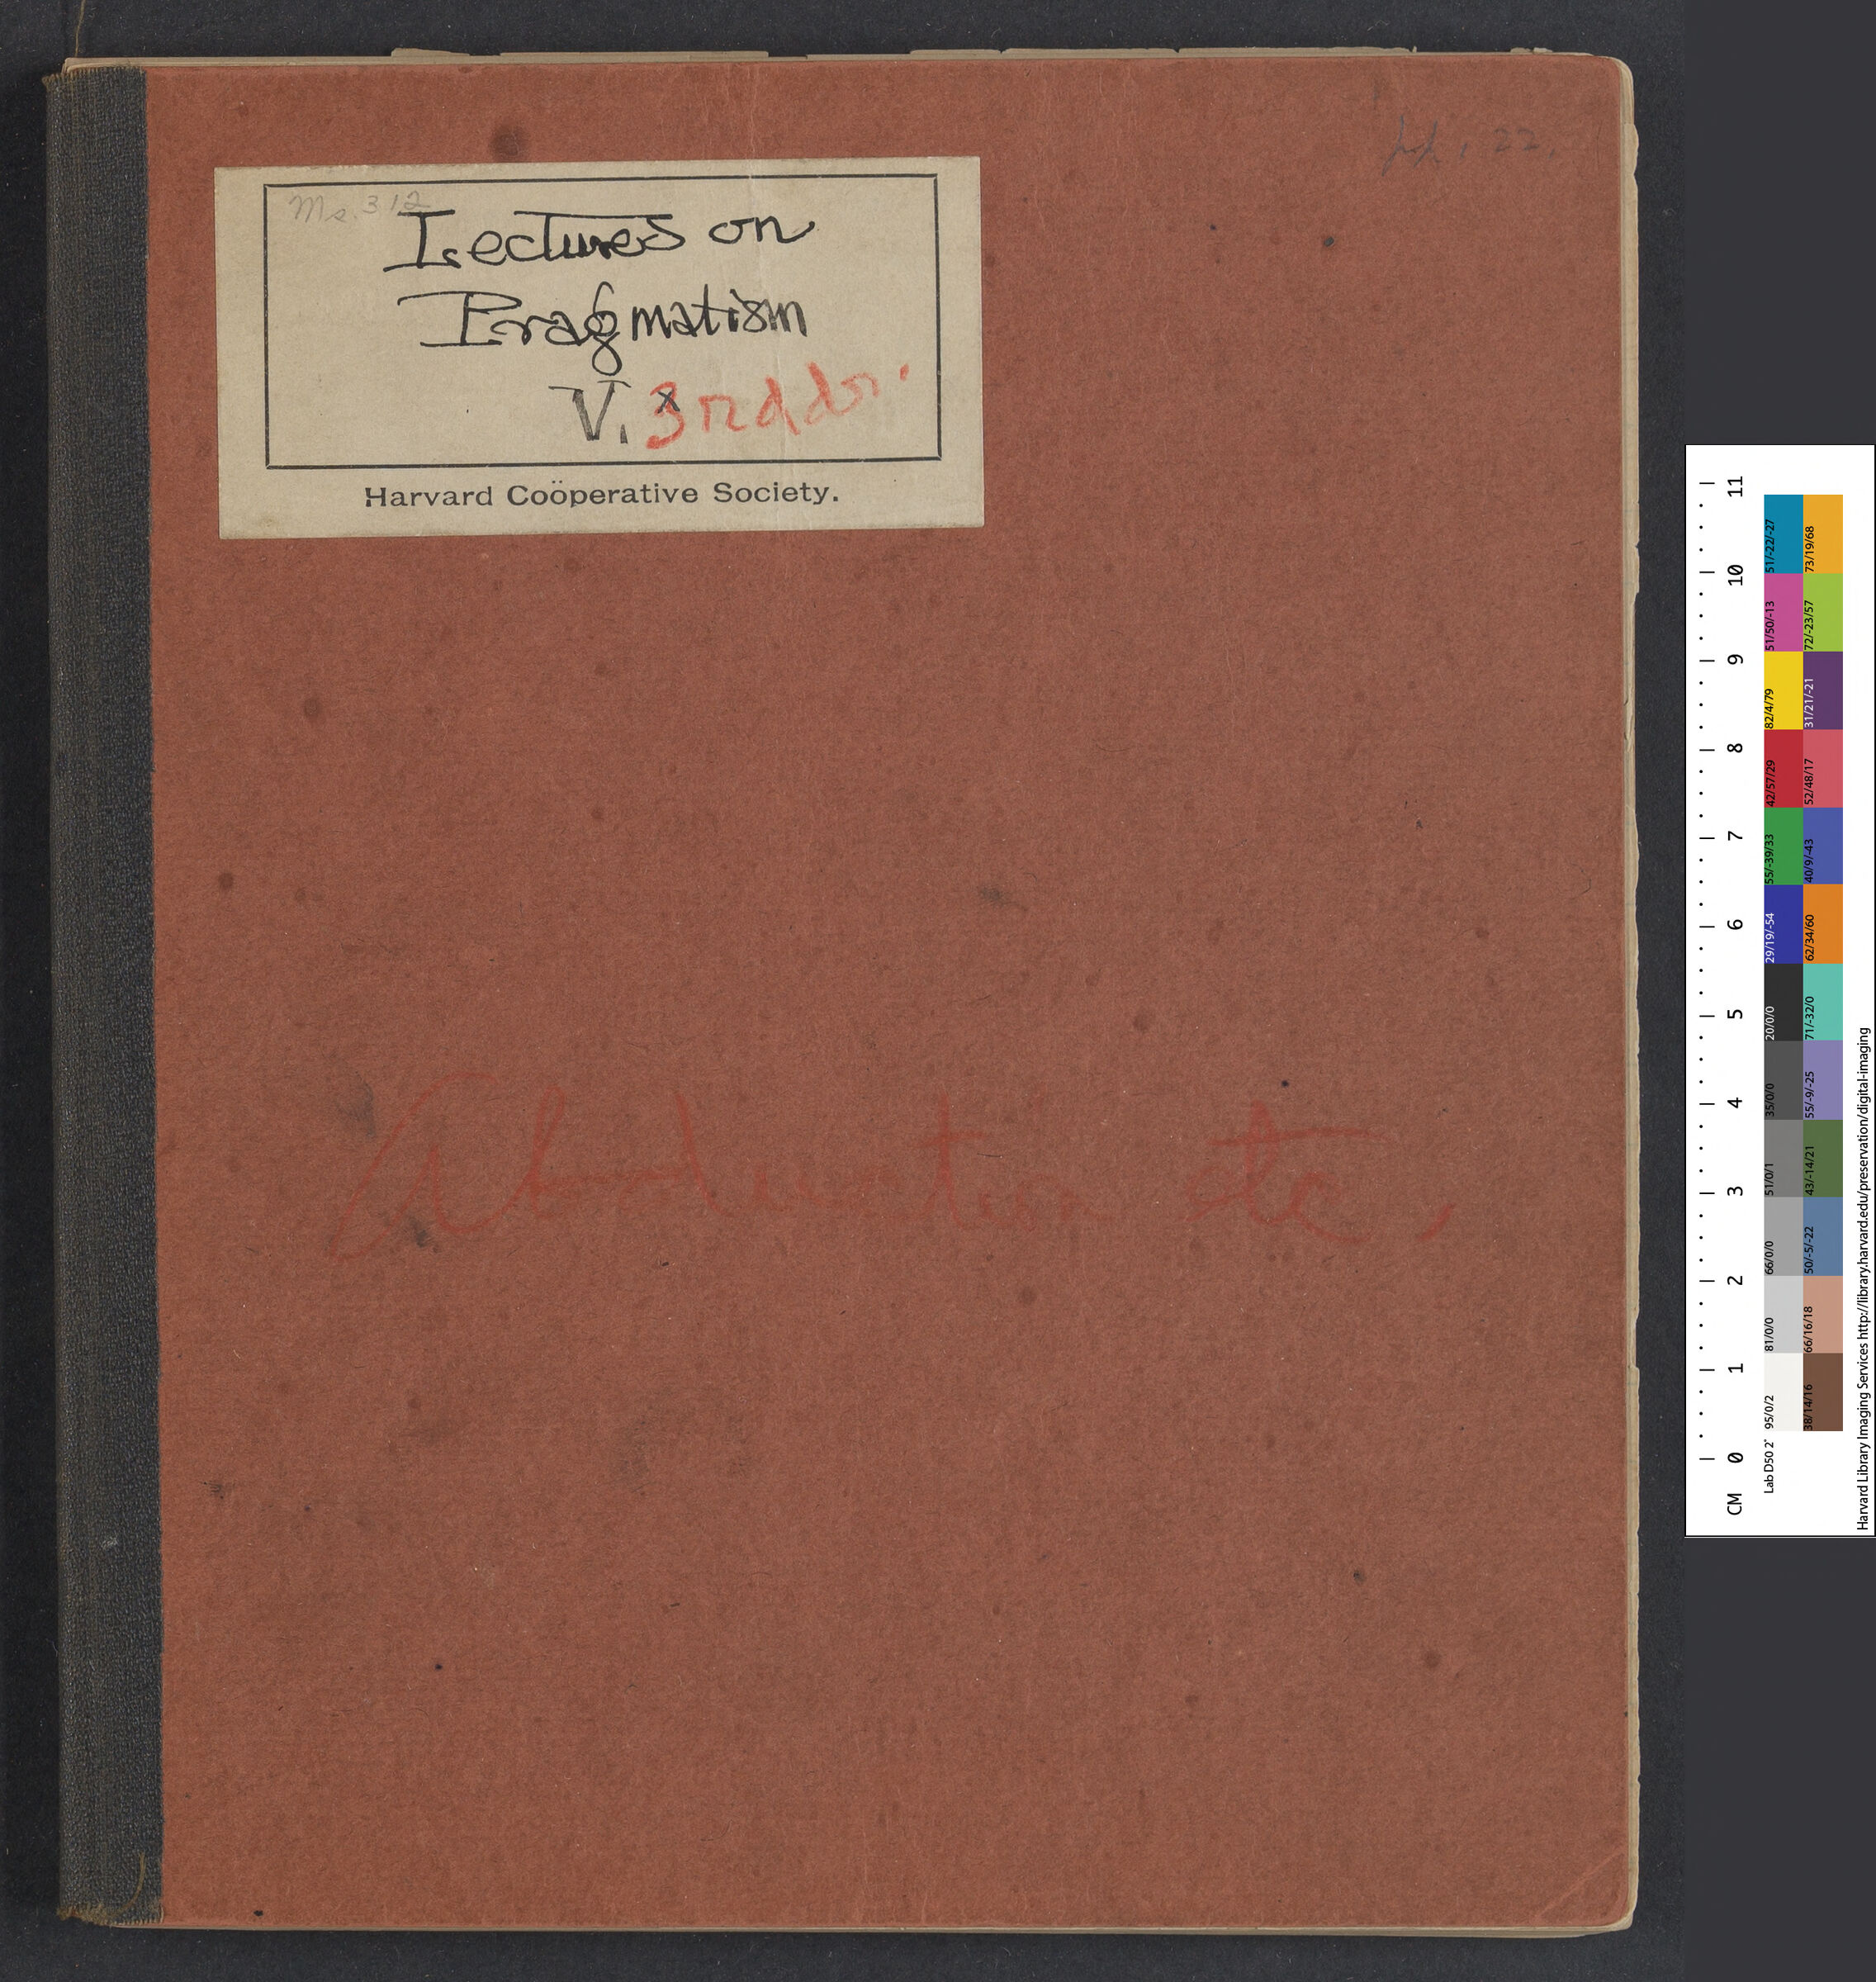 Ms. 312
Lectures on
Pragmatism
V. 3rd dr.
Harvard Coöperative Society.
Abduction etc.
11
10
9
8
7
6
5
4
3
2
1
0
CM
Lab D50 2°
95/0/2
81/0/0
66/0/0
51/0/1
35/0/0
20/0/0
29/19/-54
55/-39/33
42/57/29
82/4/79
51/50/-13
51/-22/-27
38/14/16
66/16/18
50/-5/-22
43/-14/21
55/-9/-25
71/-32/0
62/34/60
40/9/-43
52/48/17
31/21/-21
72/-23/57
73/19/68
Harvard Library Imaging Services http://library.harvard.edu/preservation/digital-imaging